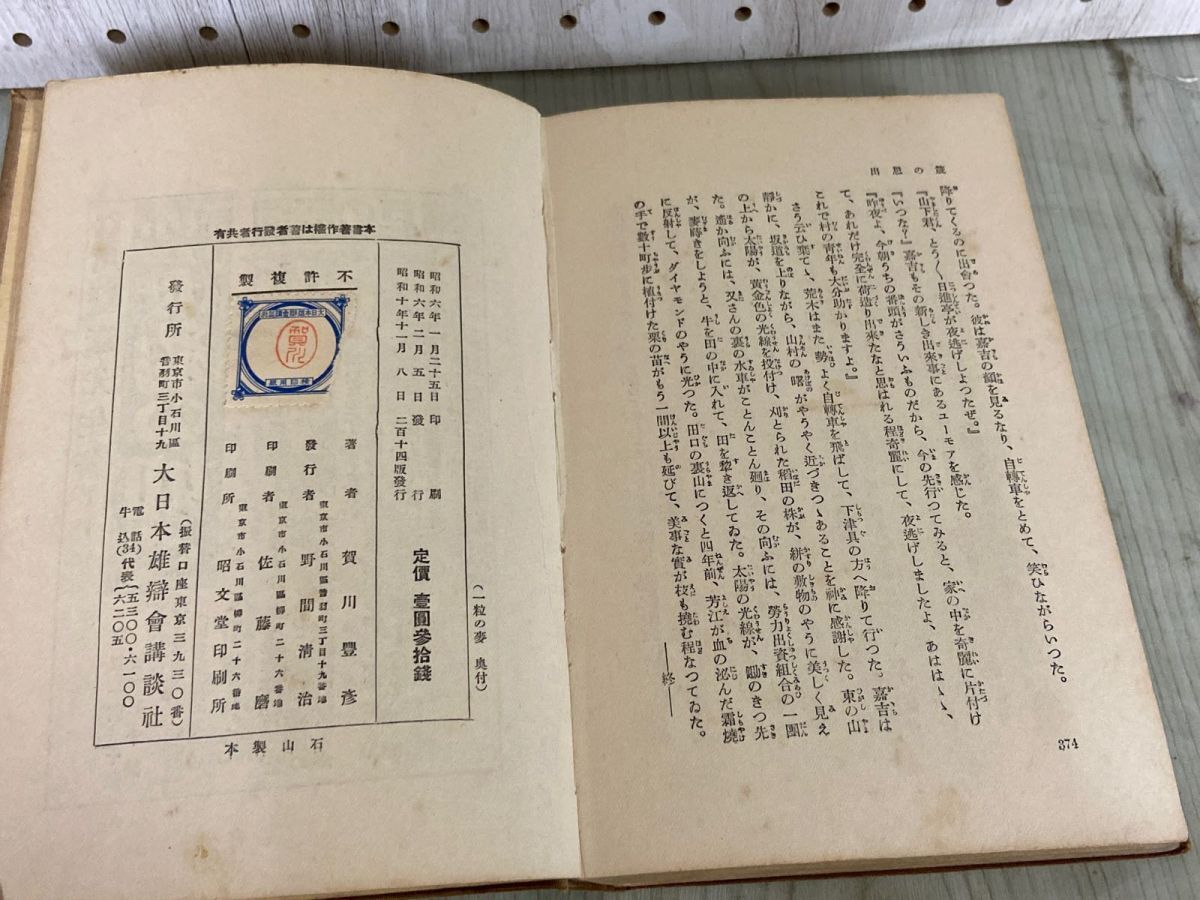 降りてくるのに出會つた。彼は嘉吉の顏を見るなり、自轉車をとめて、笑ひながらいつた。
『山下君、とう／＼日進亭が夜逃げしよつたぜ。』
『いつな？』嘉吉もその新しき出來事にあるユーモアを感じた。
『昨夜よ、今朝うちの番頭がさういふものだから、今の先行つてみると、家の中を奇麗に片付け
て、あれだけ完全に荷造り出來たなと思はれる程奇麗にして、夜逃げしましたよ、あははゝゝ、
これで村の青年も大分助かりますよ。』
さう云ひ棄てゝ、荒木はまた勢よく自轉車を飛ばして、下津具の方へ降りて行つた。嘉吉は
靜かに、坂道を上りながら、山村の曙がやうやく近づきつゝあることを神に感謝した。東の山
の上から太陽が、黃金色の光線を投付け、刈とられた稻田の株が、絣の敷物のやうに美しく見え
た。遙か向ふには、又さんの裏の水車がことんことん廻り、その向ふには、勞力出資組合の一團
が、麥蒔きをしようと、牛を田の中に入れて、田を犂き返してゐた。太陽の光線が、鋤のきつ先
に反射して、ダイヤモンドのやうに光つた。田口の裏山につくと四年前、芳江が血の泌んだ霜燒
の手で數十町步に植付けた栗の苗がもう一間以上も延びて、美事な實が枝も撓む程なつてゐた。
――終――
374
(一粒の麥 奧付)
定價 壹圓參拾錢
昭和六年一月二十五日印刷
昭和六年二月五日發行
昭和十年十一月八日二百十四版發行
著者 賀川豐彥
發行者 東京市小石川區音羽町三丁目十九番地 野間清治
印刷者 東京市小石川區柳町二十六番地 佐藤磨
印刷所 東京市小石川區柳町二十六番地 昭文堂印刷所
不許複製
本書著作權は著者發行者共有
發行所
東京市小石川區
音羽町三丁目十九
大日本雄辯會講談社
(振替口座東京三九三〇番)
電話
牛込(34)代表(五三〇〇・六一〇〇
六二〇五)
石山製本